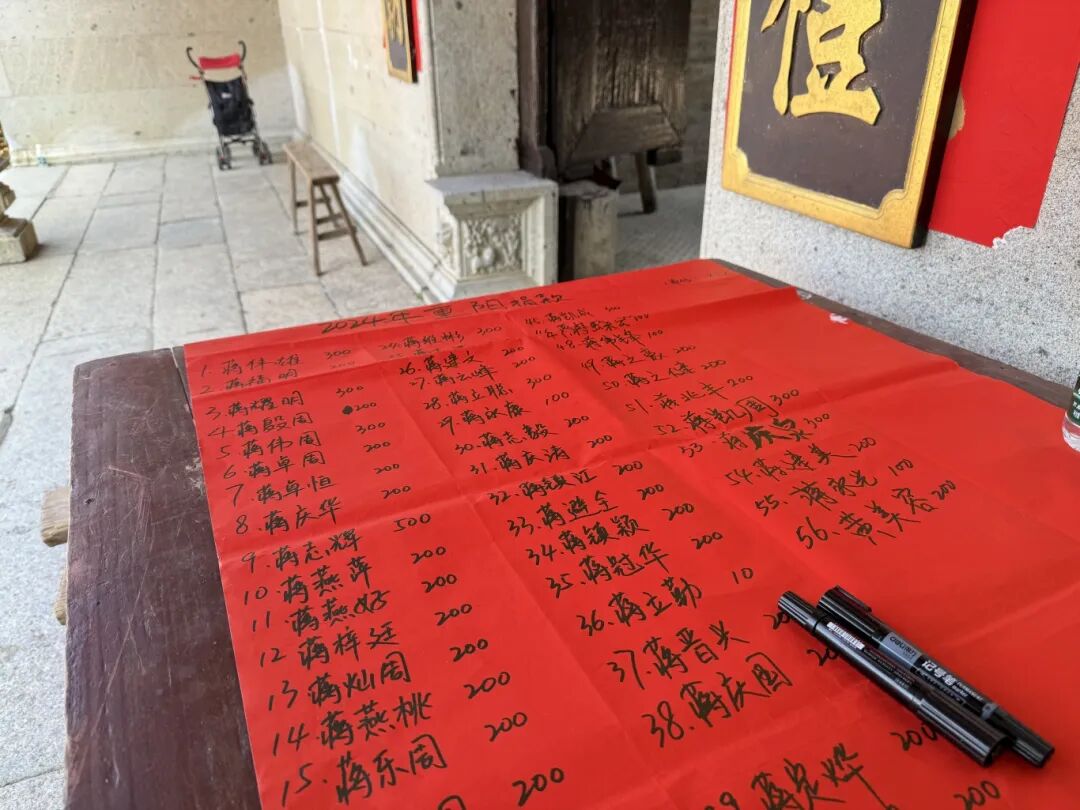 恒
2024年重阳捐款
1. 蒋伟雄 300
2 蒋瑞明 200
3 蒋耀明 300
4 蒋殷周 200
5 蒋伟周 300
6 蒋卓周 200
7 蒋卓恒 200
8. 蒋庆华 200
9. 蒋志辉 500
10 蒋燕萍 200
11 蒋燕好 200
12 蒋梓廷 200
13 蒋灿周 200
14 蒋燕桃 200
15. 蒋乐周 200
200
24. 蒋维彬 200
26. 蒋建文 200
27. 蒋云峰 200
28. 蒋立聪 300
29. 蒋永康 100
30. 蒋志毅 200
31. 蒋庆涛 200
32. 蒋镇江 200
33. 蒋进全 200
34. 蒋镇颖 200
35. 蒋冠华 200
36. 蒋立勤 10
37. 蒋晋兴
38. 蒋庆国
200
49. 蒋立
50. 蒋立健
51. 蒋兆丰 200
52. 蒋凯周 300
53. 蒋庆泉 300
54. 蒋津美 200
55. 蒋永光 100
56. 黄美容 200
deli